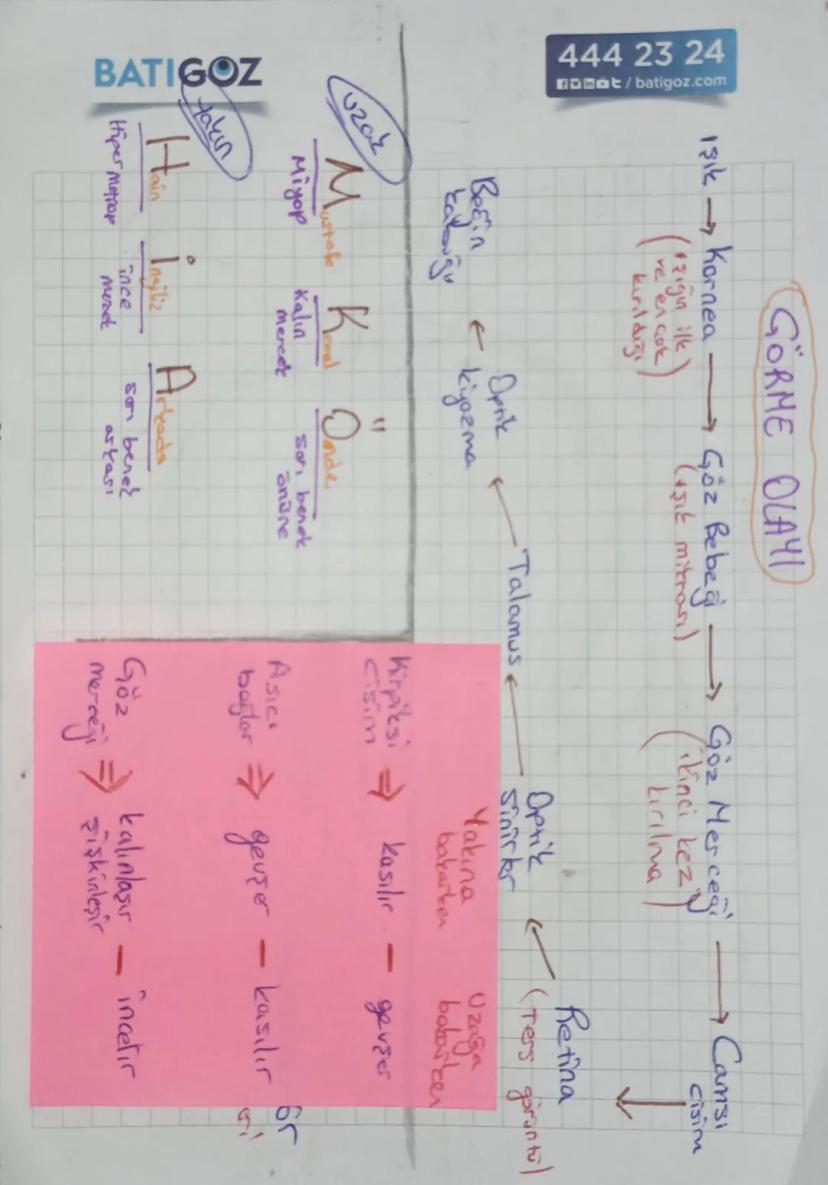 BATIGÖZ
444 23 24
/ batigoz.com
GÖRME OLAYI
Işık → Kornea → Göz Bebeği → Göz Merceği → Camsı cisim
(ışığın ilk
ve en çok
kırıldığı)
(ışık miktarı)
(ikinci kez
kırılma)
Retina
(Ters görüntü)
Optik
sinirler
Talamus
Optik
kiyazma
Beğin
kabuğu
uzak
Mustafa Kemal Önde
Miyop
Kalın
mercek
sarı benek
önüne
yakın
Hain İngiliz Arkada
Hipermetrop
ince
sarı benek
arkası
Yakına
bakarken
Uzağa
bakarken
Kirpiksi
cisim ⇒ kasılır — gevşer
Asıcı
bağlar ⇒ gevşer — kasılır
Göz
merceği ⇒ kalınlaşır
şişkinleşir — incelir
ör